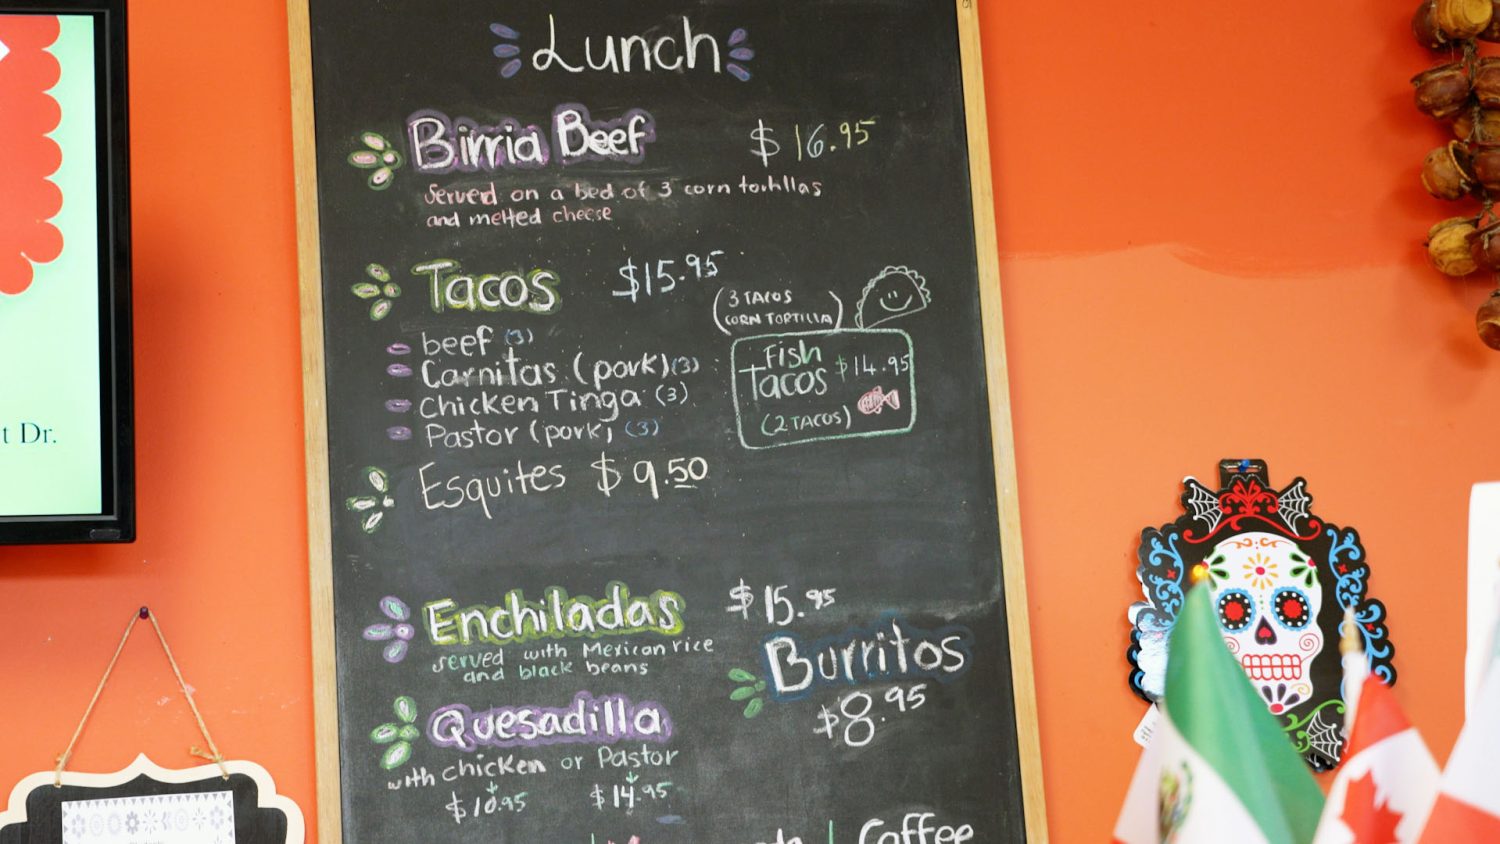 Lunch
Birria Beef $16.95
Served on a bed of 3 corn tortillas
and melted cheese
Tacos $15.95
(3 TACOS
CORN TORTILLA)
beef (3)
Carnitas (pork) (3)
Chicken Tinga (3)
Pastor (pork) (3)
Fish
Tacos $14.95
(2 TACOS)
Esquites $9.50
Enchiladas $15.95
served with Mexican rice
and black beans
Burritos
$8.95
Quesadilla
with chicken or Pastor
$10.95 $14.95
Coffee
t Dr.